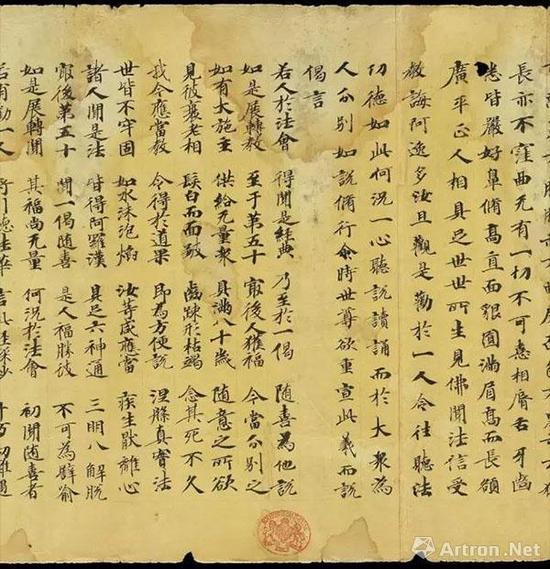 長亦不窪曲无有一切不可憙相脣舌牙齒
悉皆嚴好鼻脩高直面貌圓滿眉高而長頟
廣平正人相具足世世所生見佛聞法信受
教誨阿逸多汝且觀是勸於一人令往聽法
功德如此何況一心聽說讀誦而於大衆為
人分別如說脩行尒時世尊欲重宣此義而說
偈言
若人於法會 得聞是經典 乃至於一偈 隨喜為他說
如是展轉教 至于第五十 冣後人獲福 今當分別之
如有大施主 供給无量衆 具滿八十歲 隨意之所欲
見彼衰老相 髮白而面皺 齒踈形枯竭 念其死不久
我今應當教 令得於道果 即為方便說 涅槃真實法
世皆不牢固 如水沫泡焰 汝等咸應當 疾生猒離心
諸人聞是法 皆得阿羅漢 具足六神通 三明八解脫
冣後第五十 聞一偈隨喜 是人福勝彼 不可為譬喻
如是展轉聞 其福尚无量 何況於法會 初聞隨喜者
Artron.Net